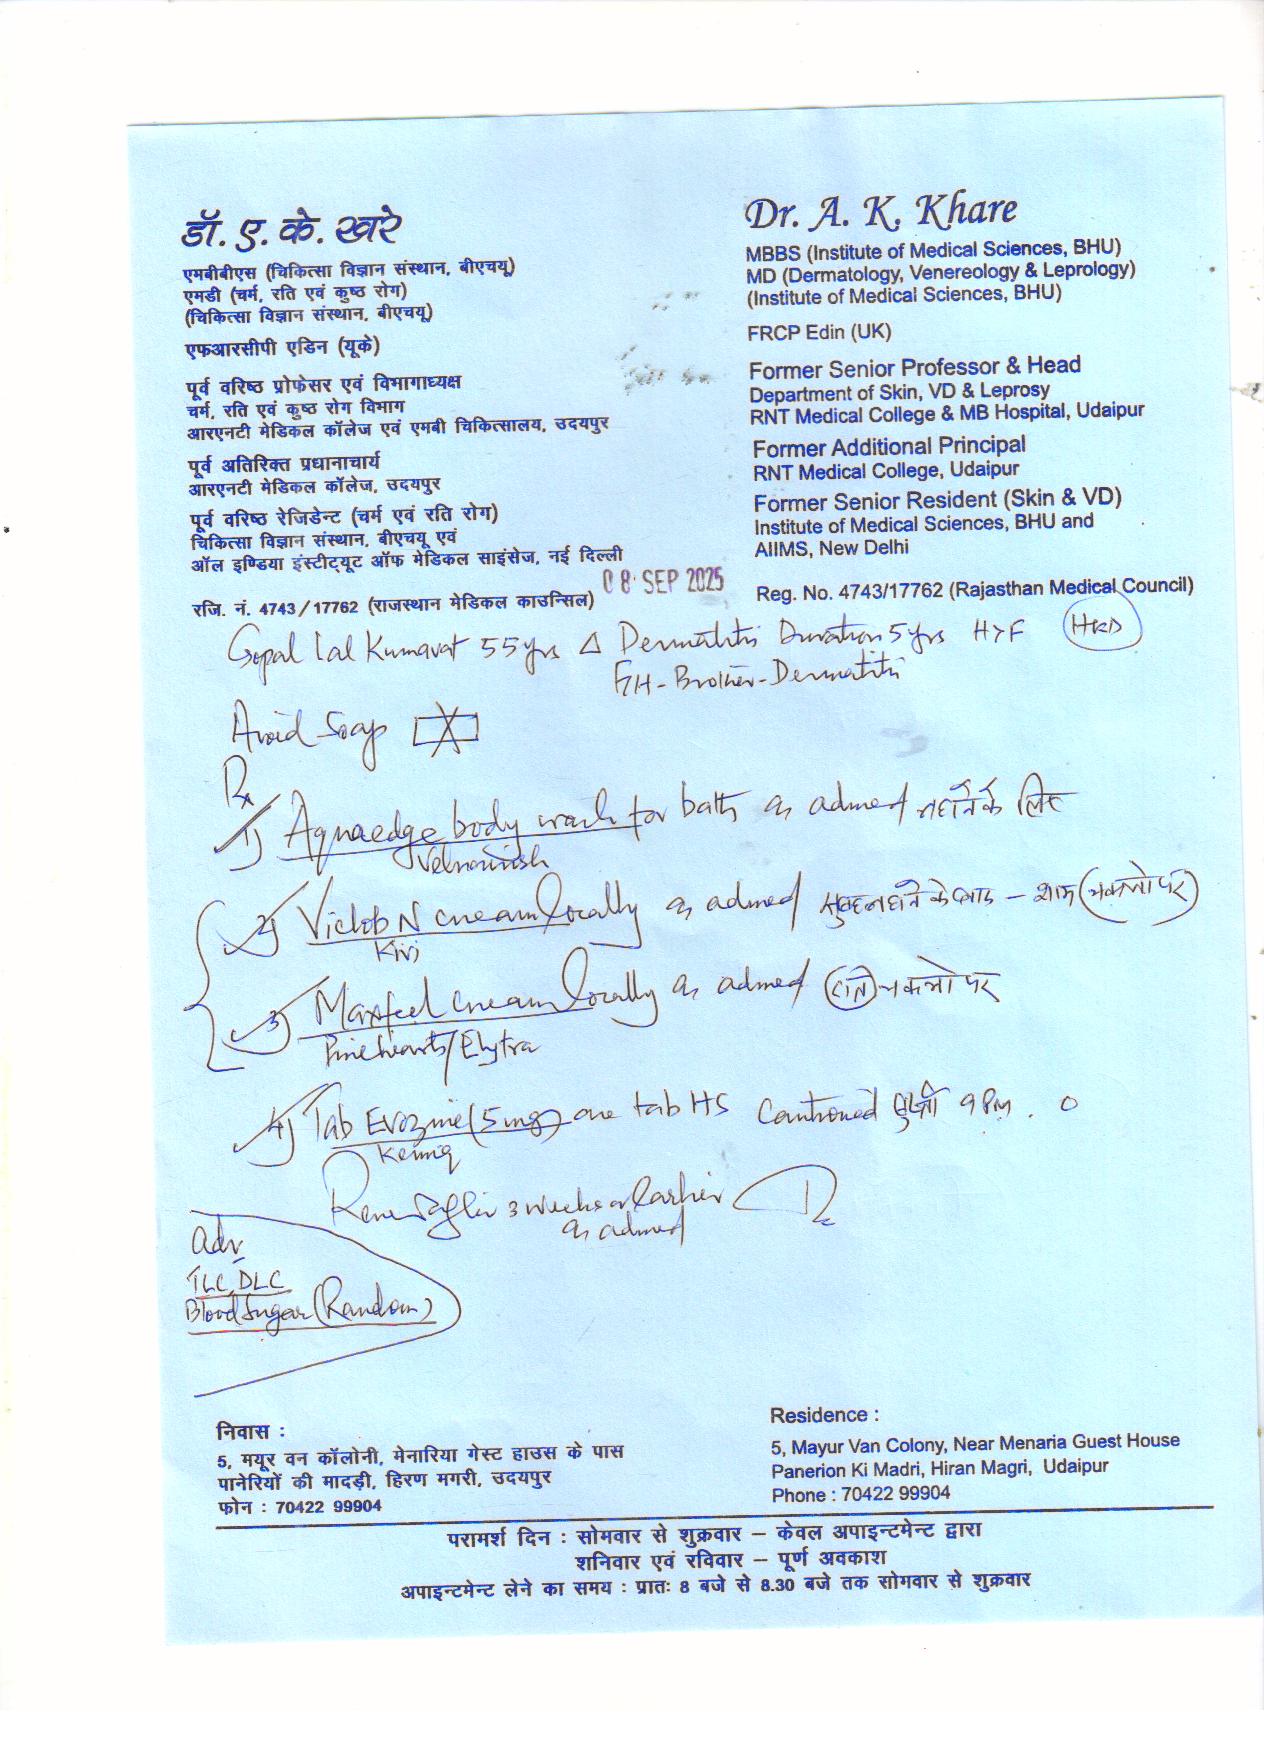 डॉ. ए. के. खरे
एमबीबीएस (चिकित्सा विज्ञान संस्थान, बीएचयू)
एमडी (चर्म, रति एवं कुष्ठ रोग)
(चिकित्सा विज्ञान संस्थान, बीएचयू)
एफआरसीपी एडिन (यूके)
पूर्व वरिष्ठ प्रोफेसर एवं विभागाध्यक्ष
चर्म, रति एवं कुष्ठ रोग विभाग
आरएनटी मेडिकल कॉलेज एवं एमबी चिकित्सालय, उदयपुर
पूर्व अतिरिक्त प्रधानाचार्य
आरएनटी मेडिकल कॉलेज, उदयपुर
पूर्व वरिष्ठ रेजिडेन्ट (चर्म एवं रति रोग)
चिकित्सा विज्ञान संस्थान, बीएचयू एवं
ऑल इण्डिया इंस्टीट्यूट ऑफ मेडिकल साइंसेज, नई दिल्ली
रजि. नं. 4743/17762 (राजस्थान मेडिकल काउन्सिल)
Dr. A. K. Khare
MBBS (Institute of Medical Sciences, BHU)
MD (Dermatology, Venereology & Leprology)
(Institute of Medical Sciences, BHU)
FRCP Edin (UK)
Former Senior Professor & Head
Department of Skin, VD & Leprosy
RNT Medical College & MB Hospital, Udaipur
Former Additional Principal
RNT Medical College, Udaipur
Former Senior Resident (Skin & VD)
Institute of Medical Sciences, BHU and
AIIMS, New Delhi
Reg. No. 4743/17762 (Rajasthan Medical Council)
08 SEP 2025
Gopal Lal Kumavat 55yrs Δ Dermatitis Duration 5yrs H>F
F/H - Brother - Dermatitis
Avoid Soap
Rx
1) Aquaedge body wash for bath as advised नहाने के लिए
2) Viclob N cream locally as advised सुबह नहाने के बाद – शाम
Kivi
3) Maxfeel cream locally as advised
/Elytra
4) Tab Evozine (5mg) one tab HS Cautioned 9 PM.
3 weeks or Earlier
as advised
Adv
TLC, DLC
Blood Sugar (Random)
निवास :
5, मयूर वन कॉलोनी, मेनारिया गेस्ट हाउस के पास
पानेरियों की मादड़ी, हिरण मगरी, उदयपुर
फोन : 70422 99904
Residence :
5, Mayur Van Colony, Near Menaria Guest House
Panerion Ki Madri, Hiran Magri, Udaipur
Phone : 70422 99904
परामर्श दिन : सोमवार से शुक्रवार – केवल अपाइन्टमेन्ट द्वारा
शनिवार एवं रविवार – पूर्ण अवकाश
अपाइन्टमेन्ट लेने का समय : प्रातः 8 बजे से 8.30 बजे तक सोमवार से शुक्रवार